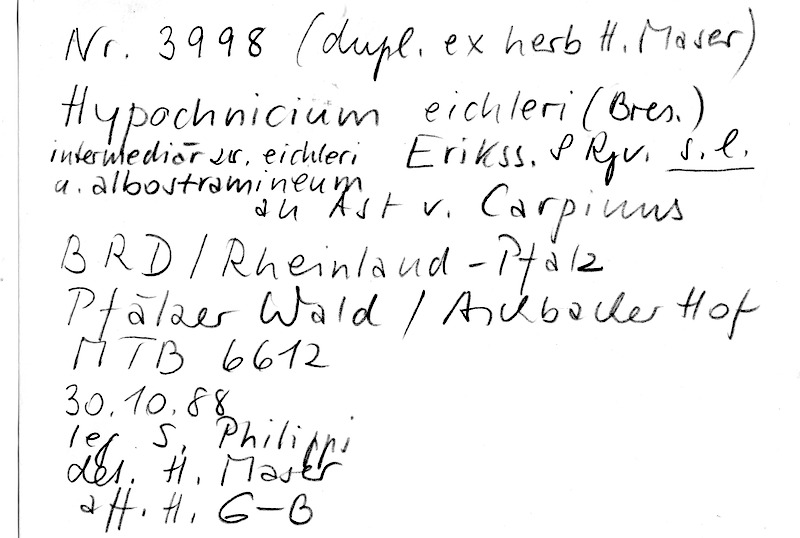 Nr. 3998 (dupl. ex herb H. Maser)
Hypochnicium eichleri (Bres.)
intermediär zw. eichleri Erikss. & Ryv. s.l.
u. albostramineum
an Ast v. Carpinus
BRD / Rheinland-Pfalz
Pfälzer Wald / Aschbacher Hof
MTB 6612
30.10.88
leg S. Philippi
det. H. Maser
aff. H. G-B